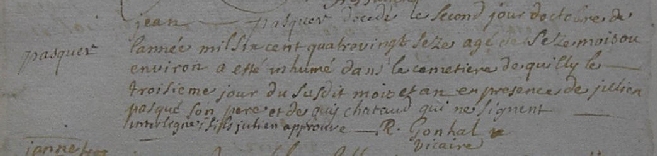 jean pasquer decede le second jour doctobre de
pasquer
lannée mil six cent quatrevingt seze agé de seze mois ou
environ a esté inhumé dans le cemetiere de quilly le
troisieme jour du susdit mois et an en presence de julien
pasque son pere et de guis chataud qui ne signent
interligne julien approuve R. Gonhal
vicaire
janne